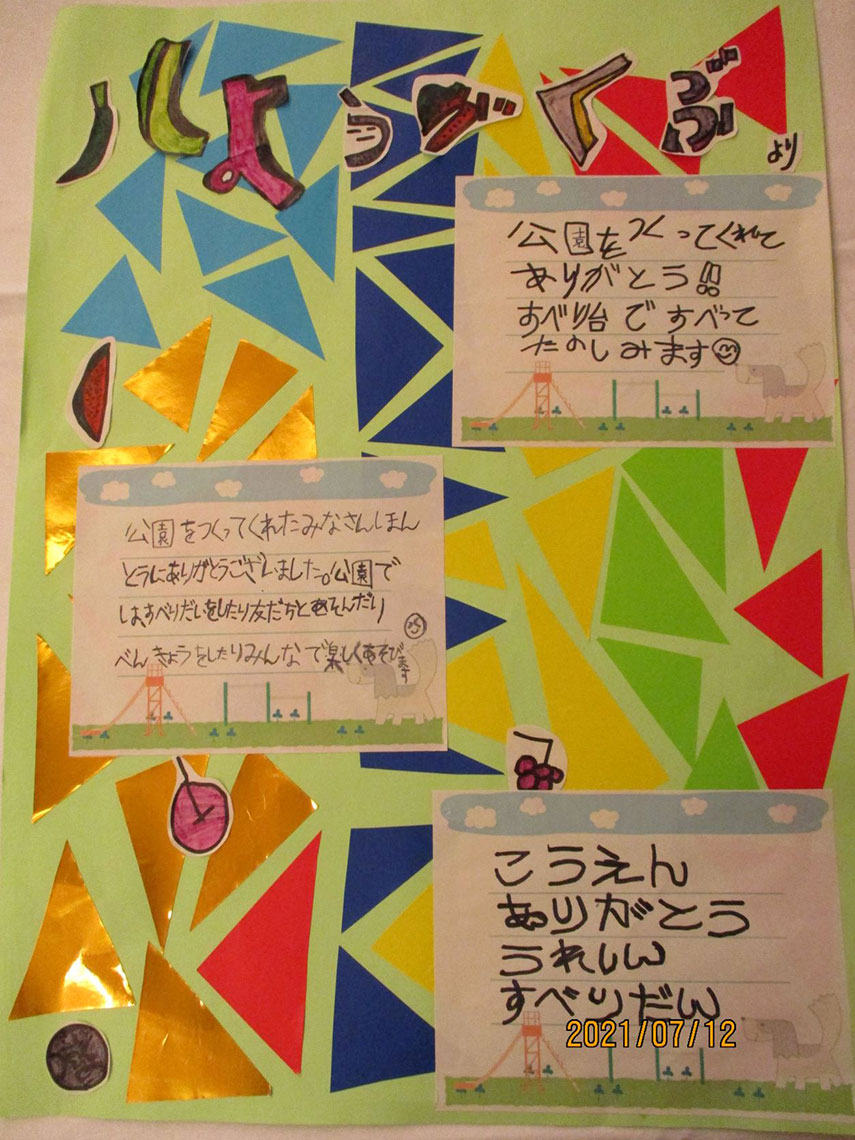 しょうがくぶ
より
公園をつくってくれて
ありがとう!!
すべり台ですべって
たのしみます
公園をつくってくれたみなさんほん
とうにありがとうございました。公園で
は、すべりだいをしたり友だちとあそんだり
べんきょうをしたりみんなで楽しくあそび
ます
こうえん
ありがとう
うれしん
すべりだん
2021/07/12